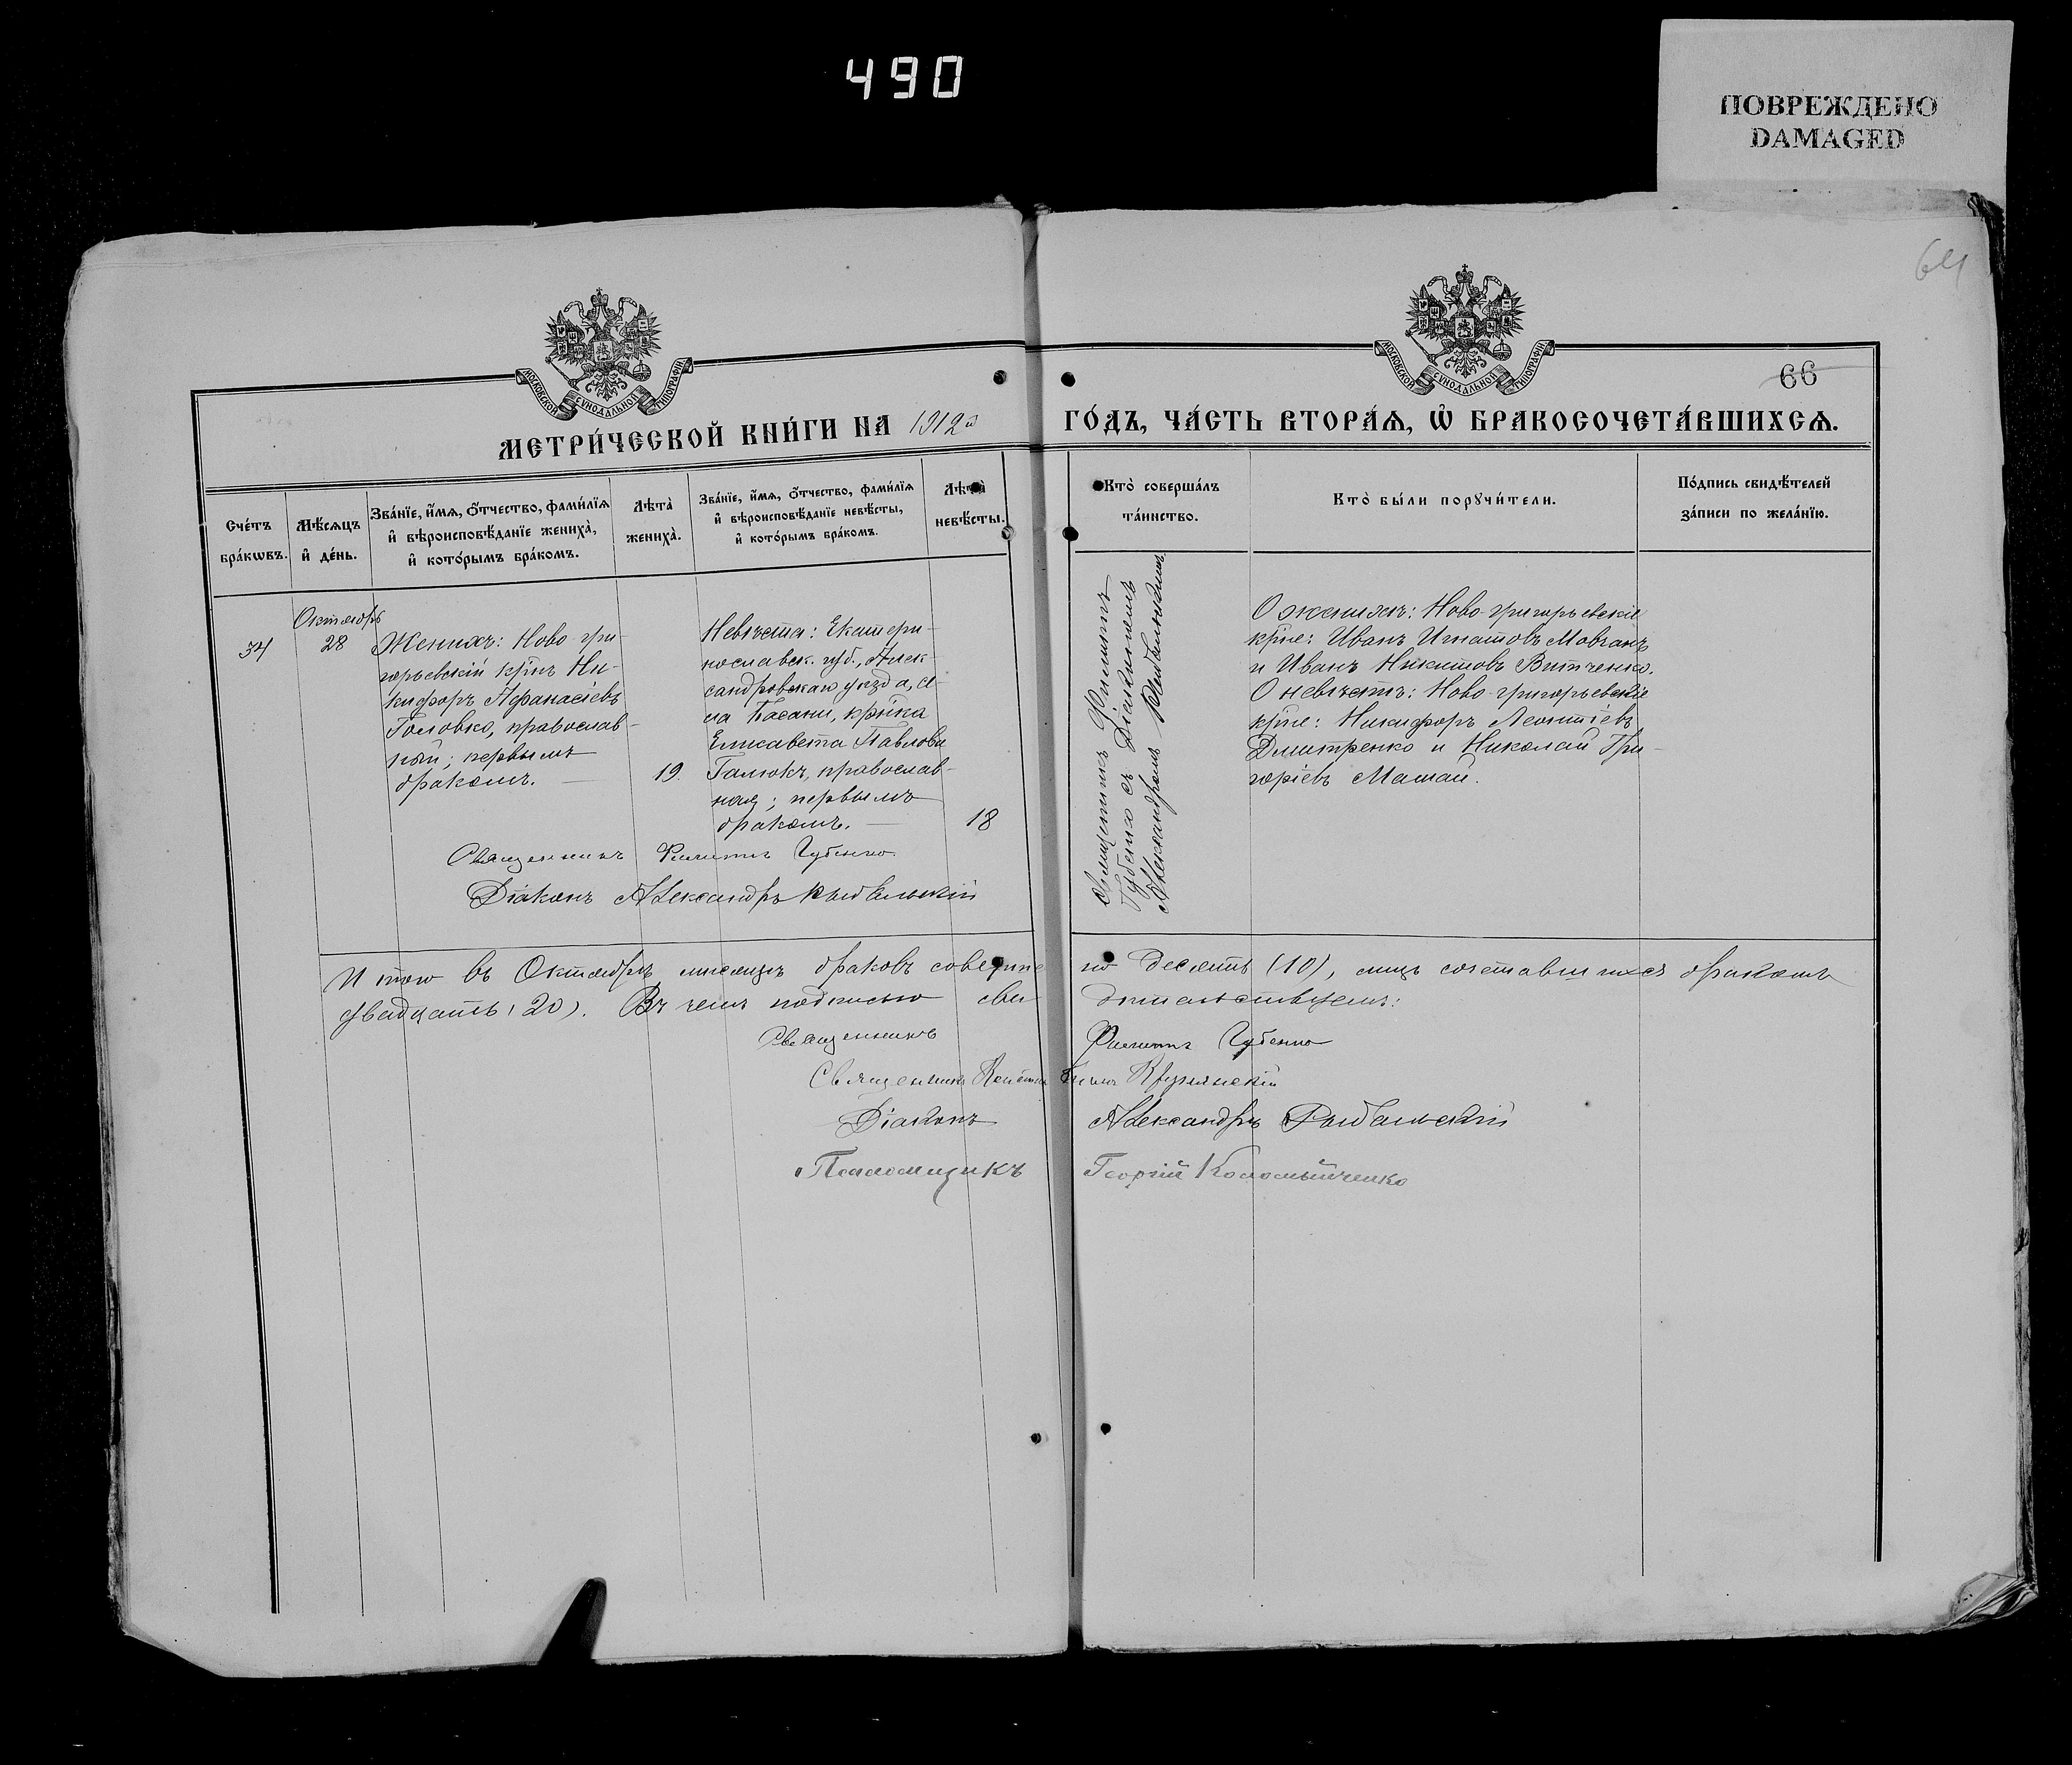 490
ПОВРЕЖДЕНО
DAMAGED
64
МОСКОВСКОЙ СѴНОДАЛЬНОЙ ТИПОГРАФІИ
МОСКОВСКОЙ СѴНОДАЛЬНОЙ ТИПОГРАФІИ
66
МЕТРИ́ЧЕСКОЙ КНИ́ГИ НА 1912й ГО́ДЪ, ЧА́СТЬ ВТОРА́Ѧ, Ѽ БРАКОСОЧЕТА́ВШИХСѦ.
Сче́тъ
бра́кѡвъ.
Мѣ́сѧцъ
и҆ де́нь.
Зва́нїе, и҆́мѧ, ѻ҆́тчество, фами́лїѧ
и҆ вѣроисповѣ́данїе жениха̀,
и҆ кото́рымъ бра́комъ.
Лѣта̀
жениха̀.
Зва́нїе, и҆́мѧ, ѻ҆́тчество, фами́лїѧ
и҆ вѣроисповѣ́данїе невѣ́сты,
и҆ кото́рымъ бра́комъ.
Лѣта̀
невѣ́сты.
Кто̀ соверша́лъ
та́инство.
Кто̀ бы́ли порꙋчи́тели.
По́дпись свидѣ́телей
за́писи по жела́нїю.
34
Октябрь
28
Женихъ: Ново-гри-
горьевскій кр̃нъ Ни-
кифоръ Афанасіевъ
Головко, православ-
ный; первымъ
бракомъ.
19.
Невѣста: Екатери-
нославск. губ., Алек-
сандровскаго уѣзда, се-
ла Басани, кр̃нка
Елисавета Павлова
Галюкъ, православ-
ная; первымъ
бракомъ.
18
Священникъ Филиппъ Губенко.
Діаконъ Александръ Рыбальскій
Священникъ Филиппъ
Губенко съ Діакономъ
Александромъ Рыбальскимъ
О женихѣ: Ново-григорьевскіе
кр̃не: Иванъ Игнатовъ Мовчанъ
и Иванъ Никитовъ Витченко.
О невѣстѣ: Ново-григорьевскіе
кр̃не: Никифоръ Леонтіевъ
Дмитренко и Николай Гри-
горіевъ Мамай.
Итого въ Октябрѣ мѣсяцѣ браковъ совершено десять (10), лицъ сочетавшихся бракомъ
двадцать (20). Въ чемъ подписью свидѣтельствуемъ:
Священникъ Филиппъ Губенко
Священникъ Константинъ Крушинскій
Діаконъ Александръ Рыбальскій
Псаломщикъ Георгій Коломыйченко